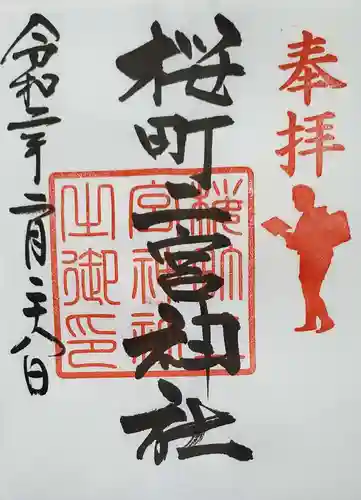 奉拝
桜町二宮神社
櫻町二宮神社之御印
令和二年二月二十八日